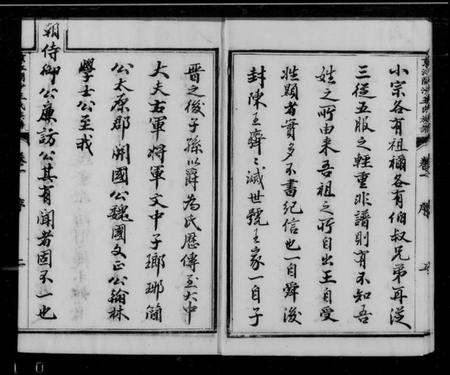 小宗各有祖禰各有伯叔兄弟再從
三從五服之輕重非譜則有不知吾
姓之所由来吾祖之所自出王自受
姓顯者實多不書紀信也一自舜後
封陳王齊〻滅世號王家一自子
晋之後子孫以爵為氏歴傳至大中
大夫右軍將軍文中子瑯琊簡
公太原郡開國公魏國文正公翰林
學士公至我
朝侍御公廉訪公其有聞者固不一也
卷一
序
二